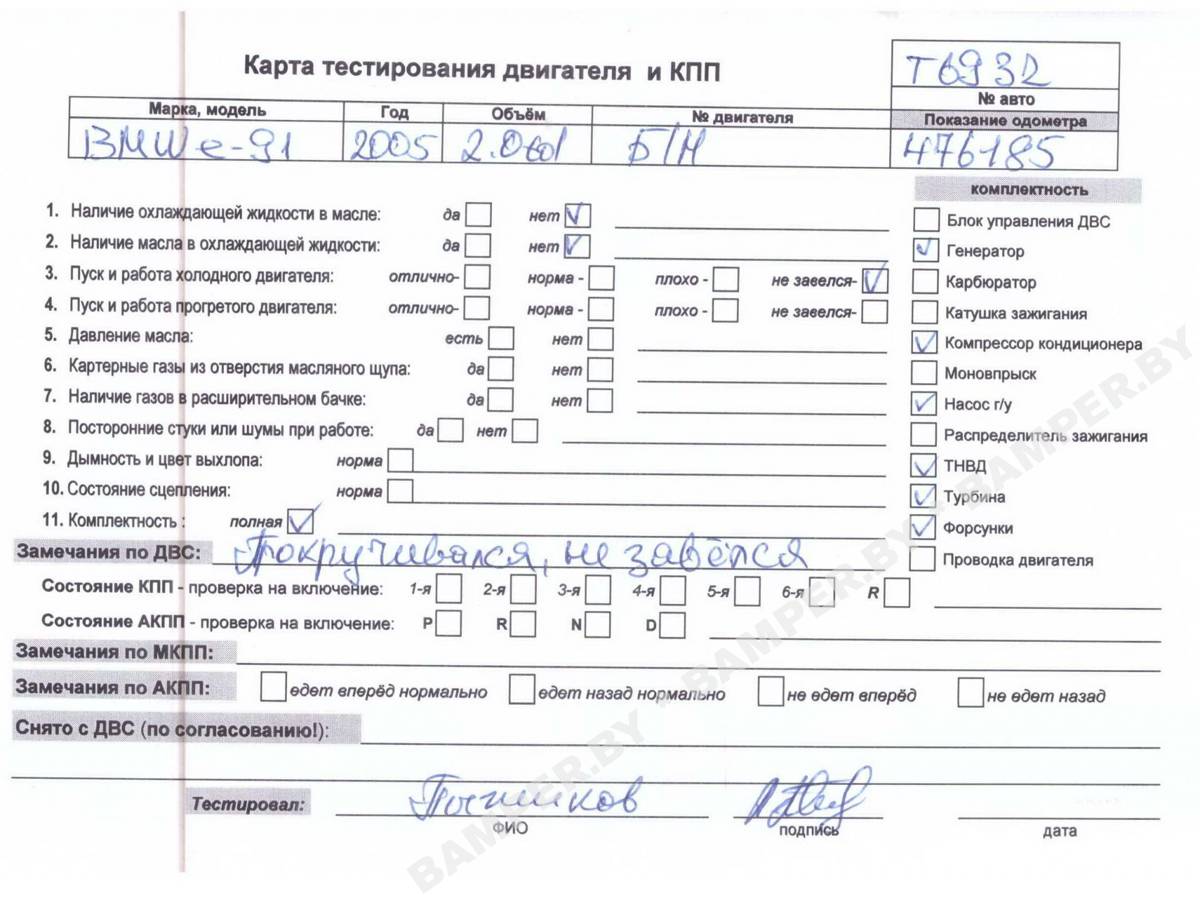 Карта тестирования двигателя и КПП
Т6932
№ авто
Марка, модель Год Объём № двигателя Показание одометра
BMW e-91 2005 2.0td Б/Н 476185
комплектность
1. Наличие охлаждающей жидкости в масле: да нет
Блок управления ДВС
2. Наличие масла в охлаждающей жидкости: да нет
Генератор
3. Пуск и работа холодного двигателя: отлично- норма - плохо - не завелся-
Карбюратор
4. Пуск и работа прогретого двигателя: отлично- норма - плохо - не завелся-
Катушка зажигания
5. Давление масла: есть нет
Компрессор кондиционера
6. Картерные газы из отверстия масляного щупа: да нет
Моновпрыск
7. Наличие газов в расширительном бачке: да нет
Насос г/у
8. Посторонние стуки или шумы при работе: да нет
Распределитель зажигания
9. Дымность и цвет выхлопа: норма
ТНВД
10. Состояние сцепления: норма
Турбина
11. Комплектность : полная
Форсунки
Замечания по ДВС: Прокручивался, не завёлся
Проводка двигателя
Состояние КПП - проверка на включение: 1-я 2-я 3-я 4-я 5-я 6-я R
Состояние АКПП - проверка на включение: P R N D
Замечания по МКПП:
Замечания по АКПП: едет вперёд нормально едет назад нормально не едет вперёд не едет назад
Снято с ДВС (по согласованию!):
Тестировал:
ФИО подпись дата
BAMPER.BY - BAMPER.BY - BAMPER.BY - BAMPER.BY